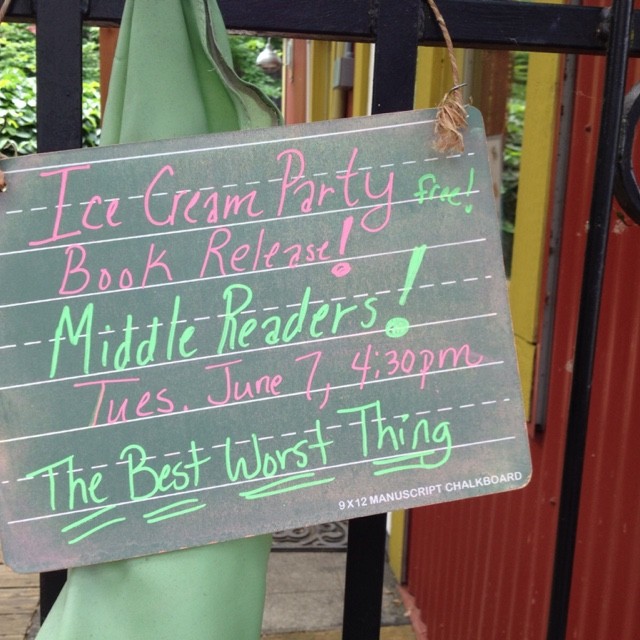 Ice Cream Party free!
Book Release!
Middle Readers!
Tues. June 7, 4:30pm
The Best Worst Thing
9X12 MANUSCRIPT CHALKBOARD